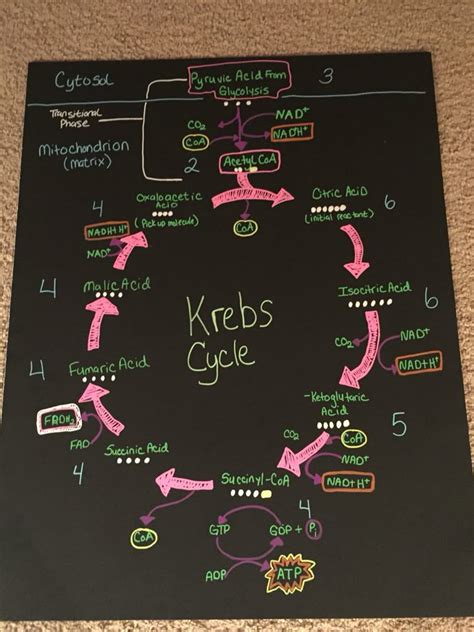 Cytosol
Pyruvic Acid From
Glycolysis
3
Transitional
Phase
CO2
NAD+
CoA
NADH+
Mitochondrion
(matrix)
2
Acetyl CoA
4
Oxaloacetic
Acid
(Pick up molecule)
Citric Acid
(initial reactant)
6
CoA
NADH+H+
NAD+
4
Malic Acid
Isocitric Acid
6
Krebs
Cycle
CO2
NAD+
NADH+H+
4
Fumaric Acid
-Ketoglutaric
Acid
5
FADH2
FAD
CO2
CoA
NAD+
NADH+H+
Succinic Acid
4
Succinyl-CoA
4
CoA
GTP
GDP + Pi
ADP
ATP